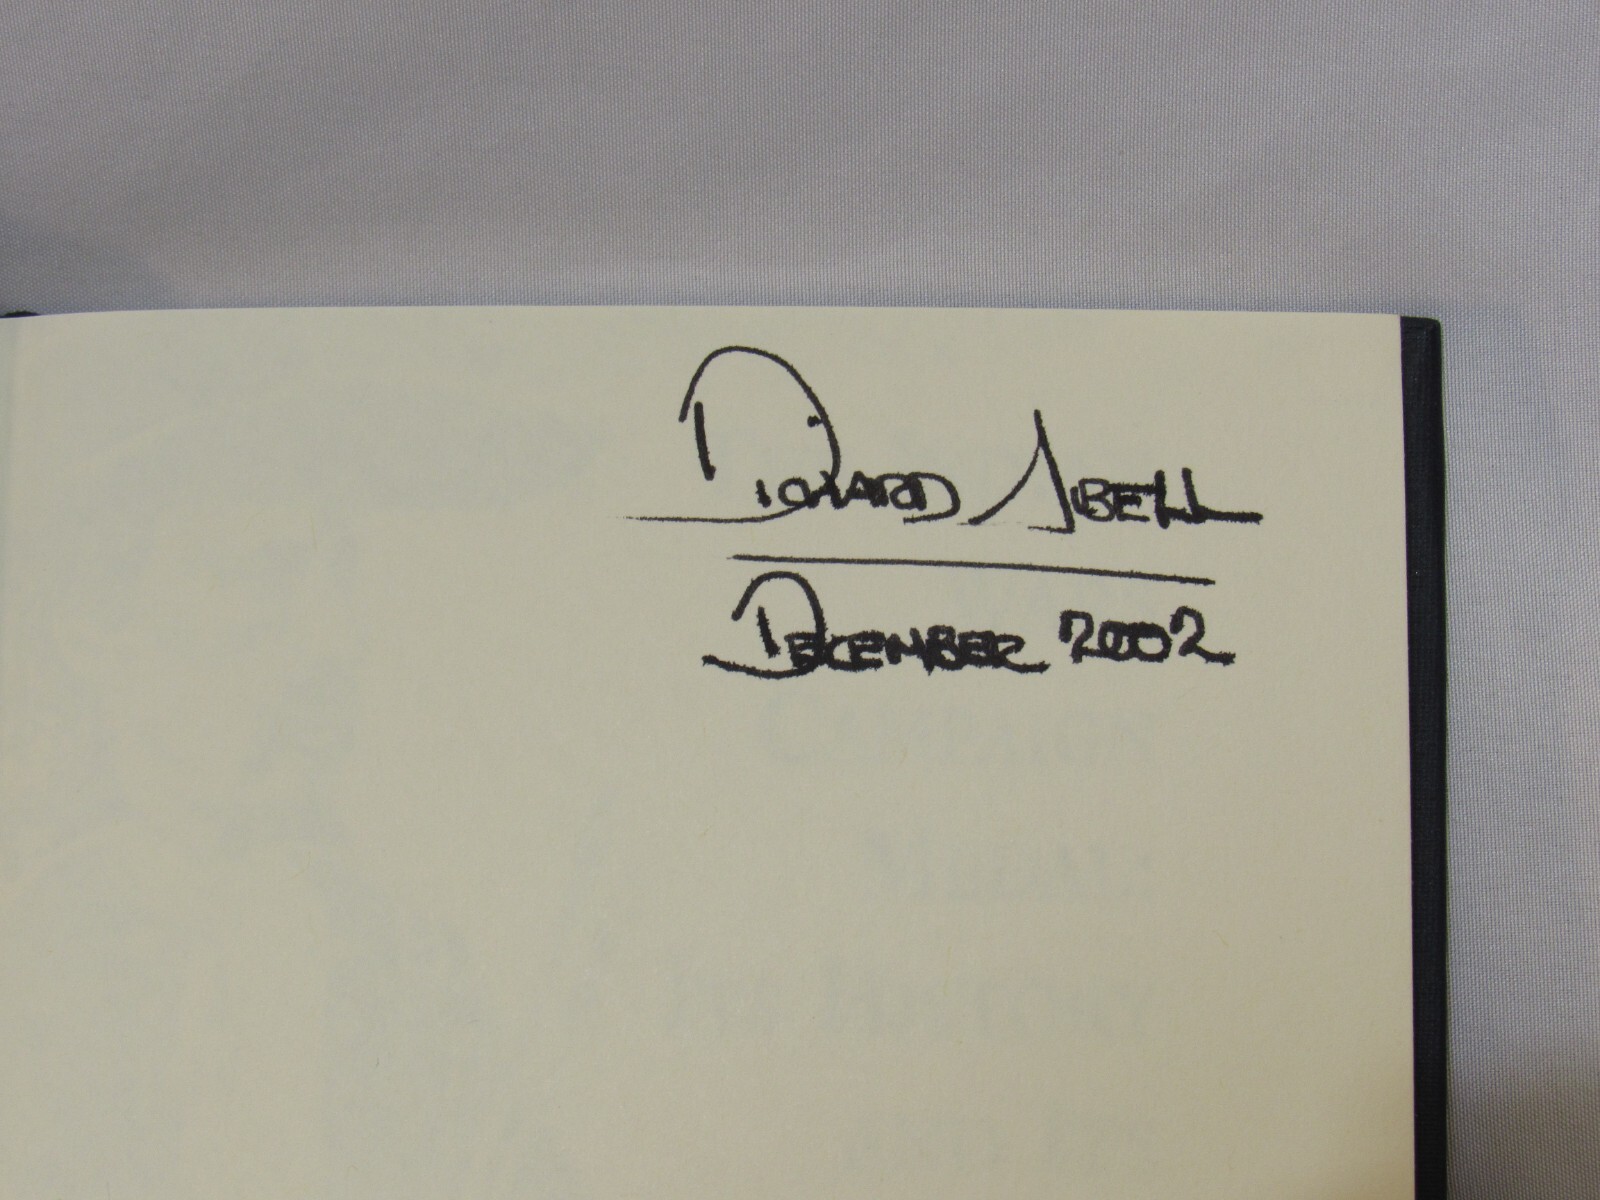 Richard Abell
December 2002